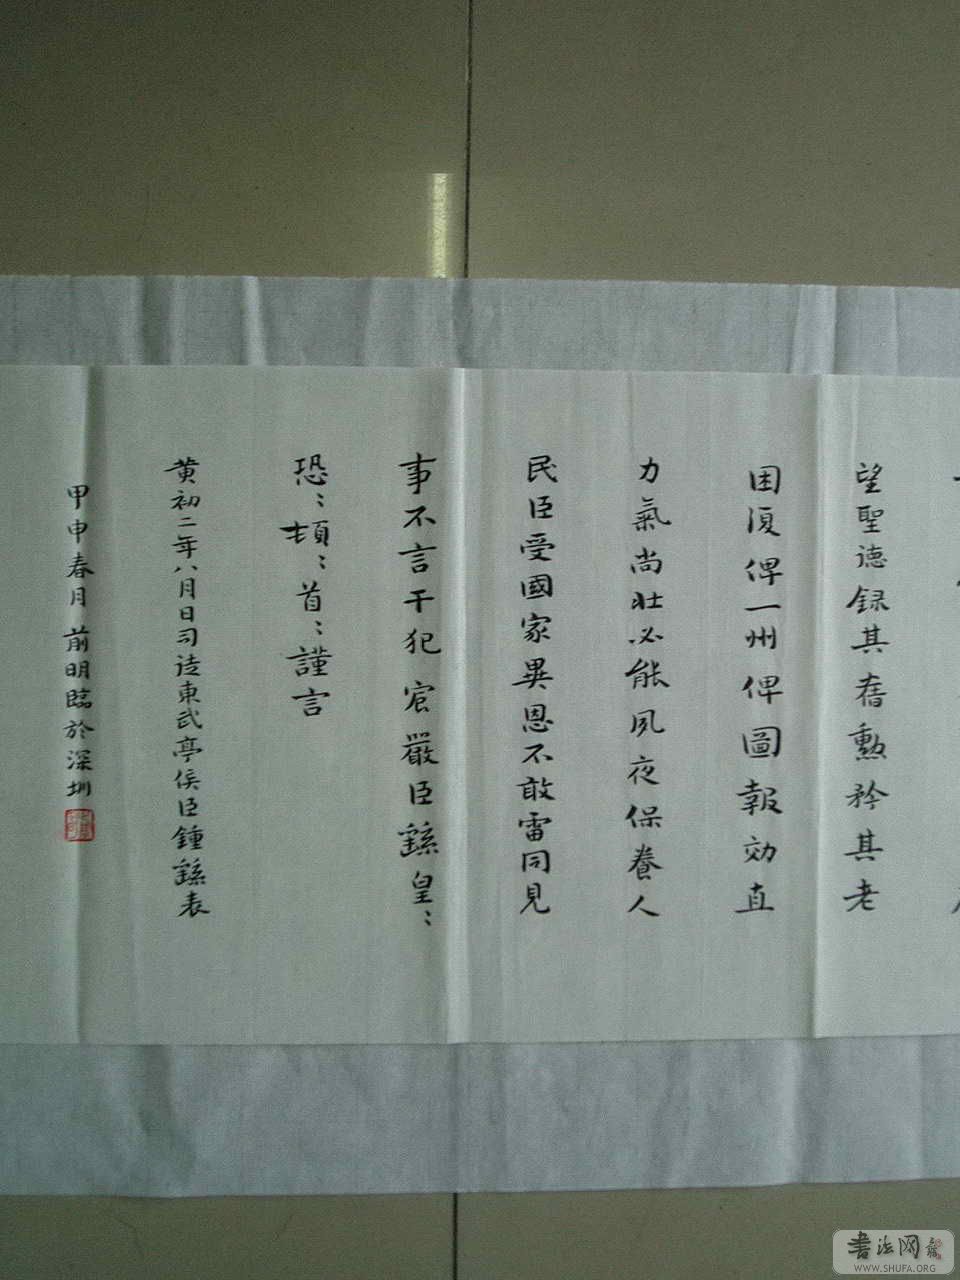 望聖德録其舊勳矜其老
困復俾一州俾圖報効直
力氣尚壯必能夙夜保養人
民臣受國家異恩不敢雷同見
事不言干犯宸嚴臣繇皇〻
恐〻頓〻首〻謹言
黄初二年八月日司徒東武亭侯臣鍾繇表
甲申春月前明臨於深圳
書法网
WWW.SHUFA.ORG